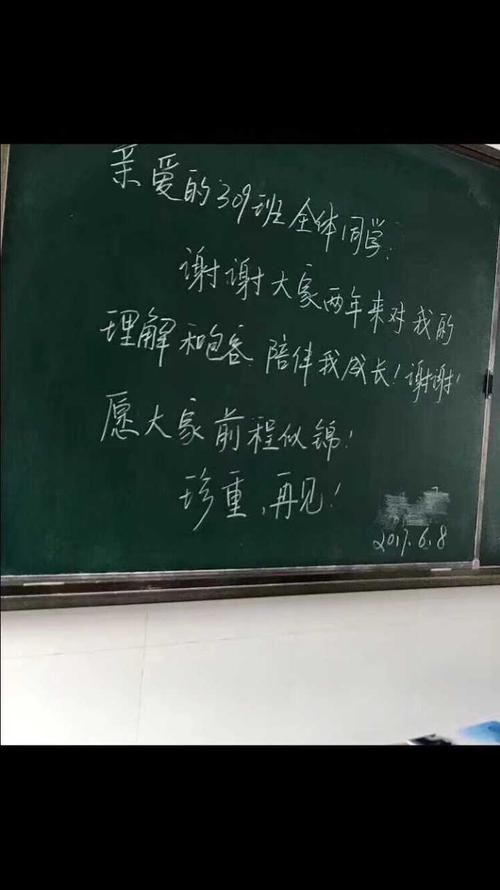 亲爱的309班全体同学:
谢谢大家两年来对我的
理解和包容,陪伴我成长!谢谢!
愿大家前程似锦!
珍重,再见!
2017.6.8